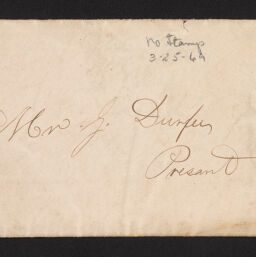 No Stamp
3-25-69
Mr. J. Durfee
Present